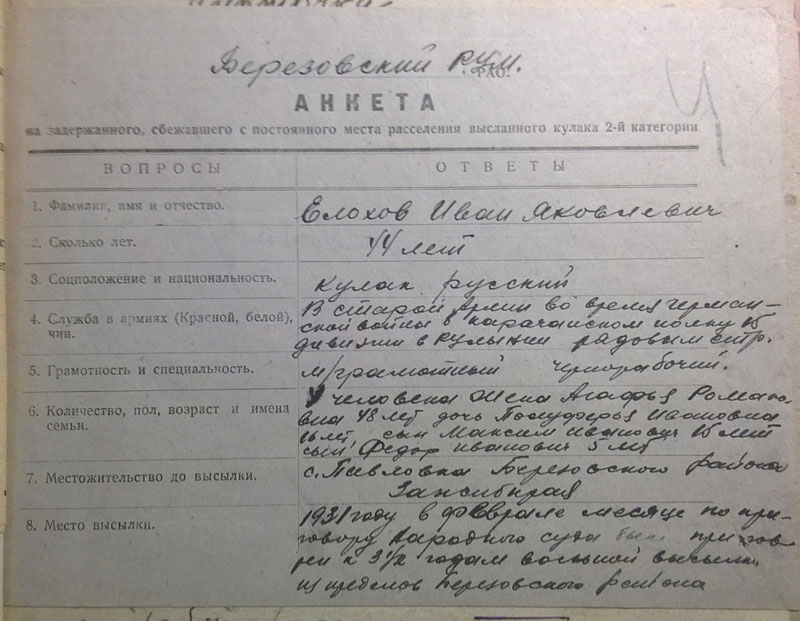 Березовский РУМ.
РАО.
АНКЕТА
на задержанного, сбежавшего с постоянного места расселения высланного кулака 2-й категории
ВОПРОСЫ
ОТВЕТЫ
1. Фамилия, имя и отчество.
Елохов Иван Яковлевич
2. Сколько лет.
44 лет
3. Соцположение и национальность.
Кулак русский
4. Служба в армиях (Красной, белой),
чин.
В старой армии во время герман-
ской войны в полку 15
дивизии в Румынии рядовым
5. Грамотность и специальность.
м/грамотный чернорабочий.
6. Количество, пол, возраст и имена
семьи.
человека жена Агафья Романо-
вна 48 лет дочь Ивановна
16 лет, сын Максим Иванович 15 лет
сын Федор Иванович 5 лет
7. Местожительство до высылки.
с. Павловка Березовского района
Запсибкрая
8. Место высылки.
1931 году в феврале месяце по при-
говору Народного суда был пригов-
рен к 3 1/2 годам вольной высылки
из пределов Березовского района